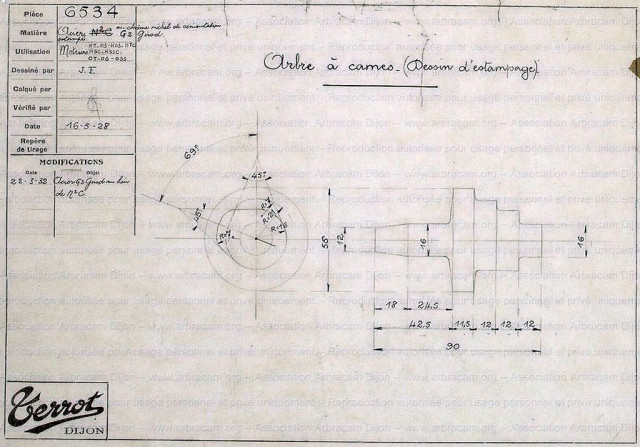 Pièce 6534
Matière Acier N°C au chrome nickel de cémentation
estampé G2 Girod
Utilisation Moteurs HT.HS-HSS.HTC
HSC-HSSC.
OT-OS-OSS
Dessiné par J.F.
Calqué par
Vérifié par
Date 16-5-28
Repère
de tirage
MODIFICATIONS
Date Objet
22-3-32 Acier G2 Girod au lieu
de N°C
Arbre à cames-(Dessin d'estampage)
69°
45°
45°
56
12
16
16
18 24,5
42,5 11,5 12 12 12
90
Terrot
DIJON
Reproduction autorisée pour usage personnel et privé uniquement – www.arbracam.org – Association Arbracam Dijon